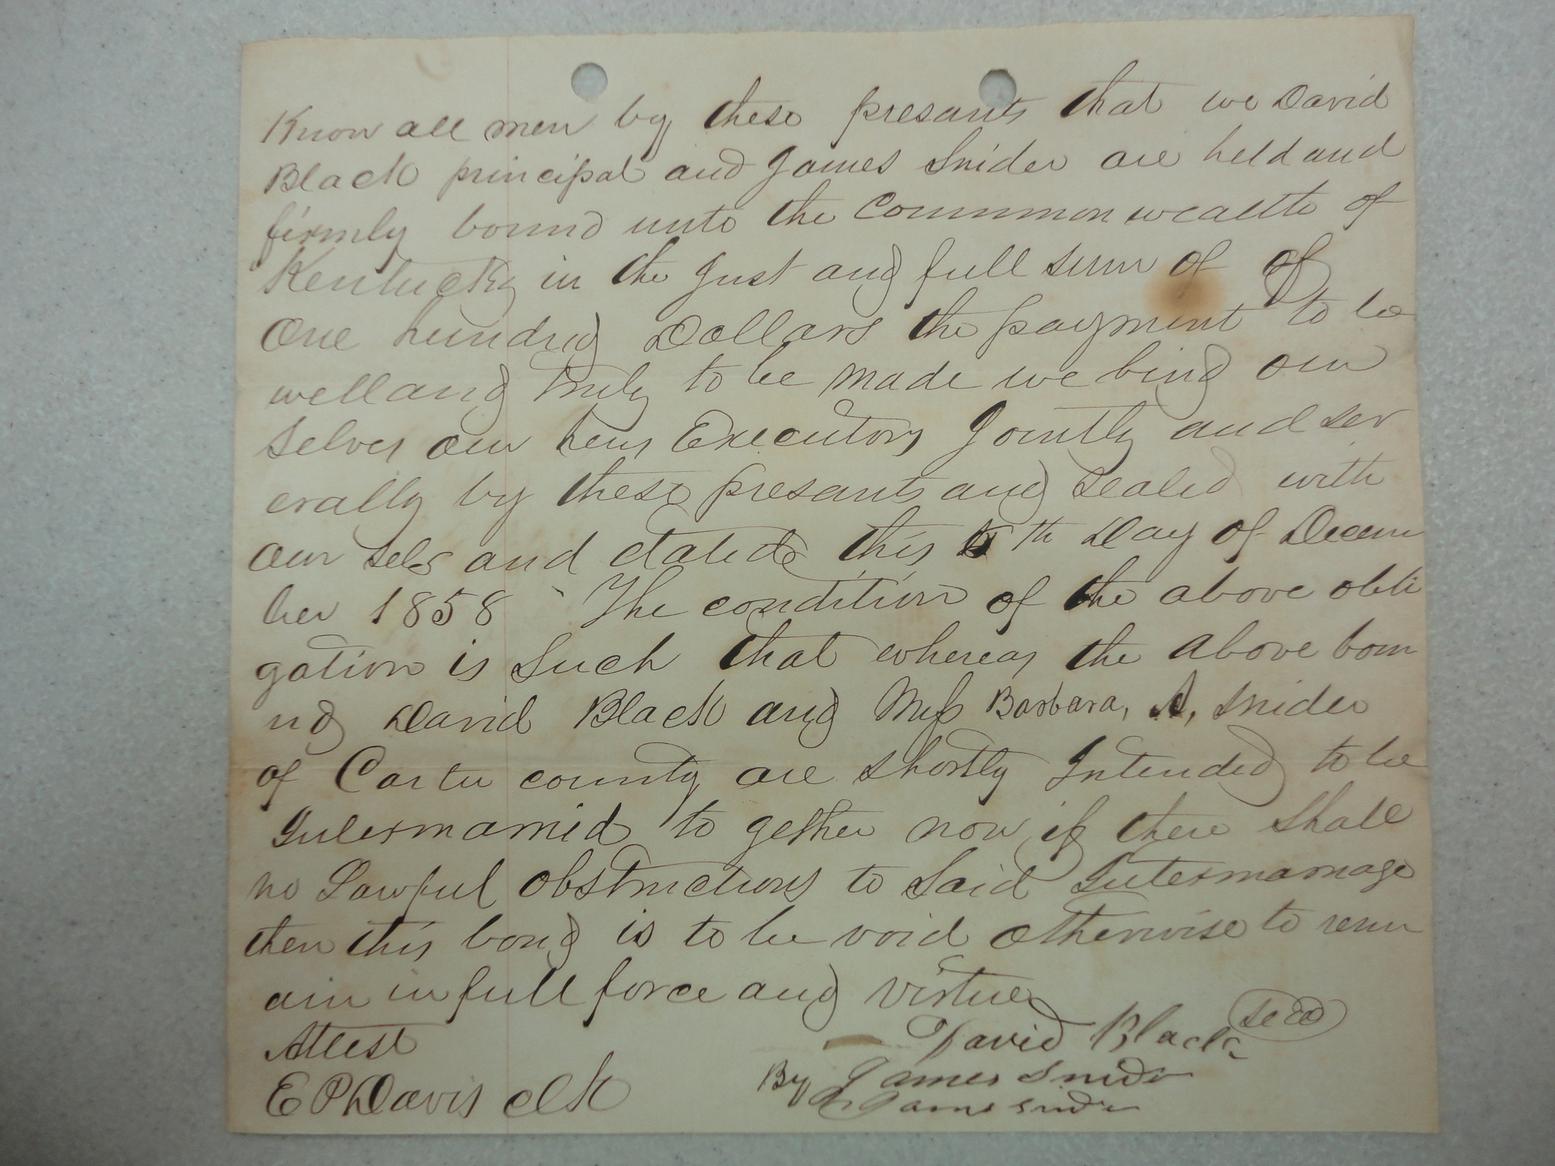 Know all men by these presants that we David
Black principal and James Snider are held and
firmly bound unto the Commonwealth of
Kentucky in the Just and full sum of of
One hundred Dollars the payment to be
well and truly to be made we bind our
selves our heirs Executors Jointly and sev
erally by these presants and sealed with
our sels and dated this th Day of Decem
ber 1858 The condition of the above obli
gation is Such that whereas the above boun
nd David Black and Miss Barbara, A, Snider
of Carter county are shortly Intended to be
Intermarried to gether now if there Shall
no Lawful obstructions to Said Intermarriage
then this bond is to be void otherwise to rem
ain in full force and virtue
Attest David Black seal
E P Davis clk By James Snider
James Snider